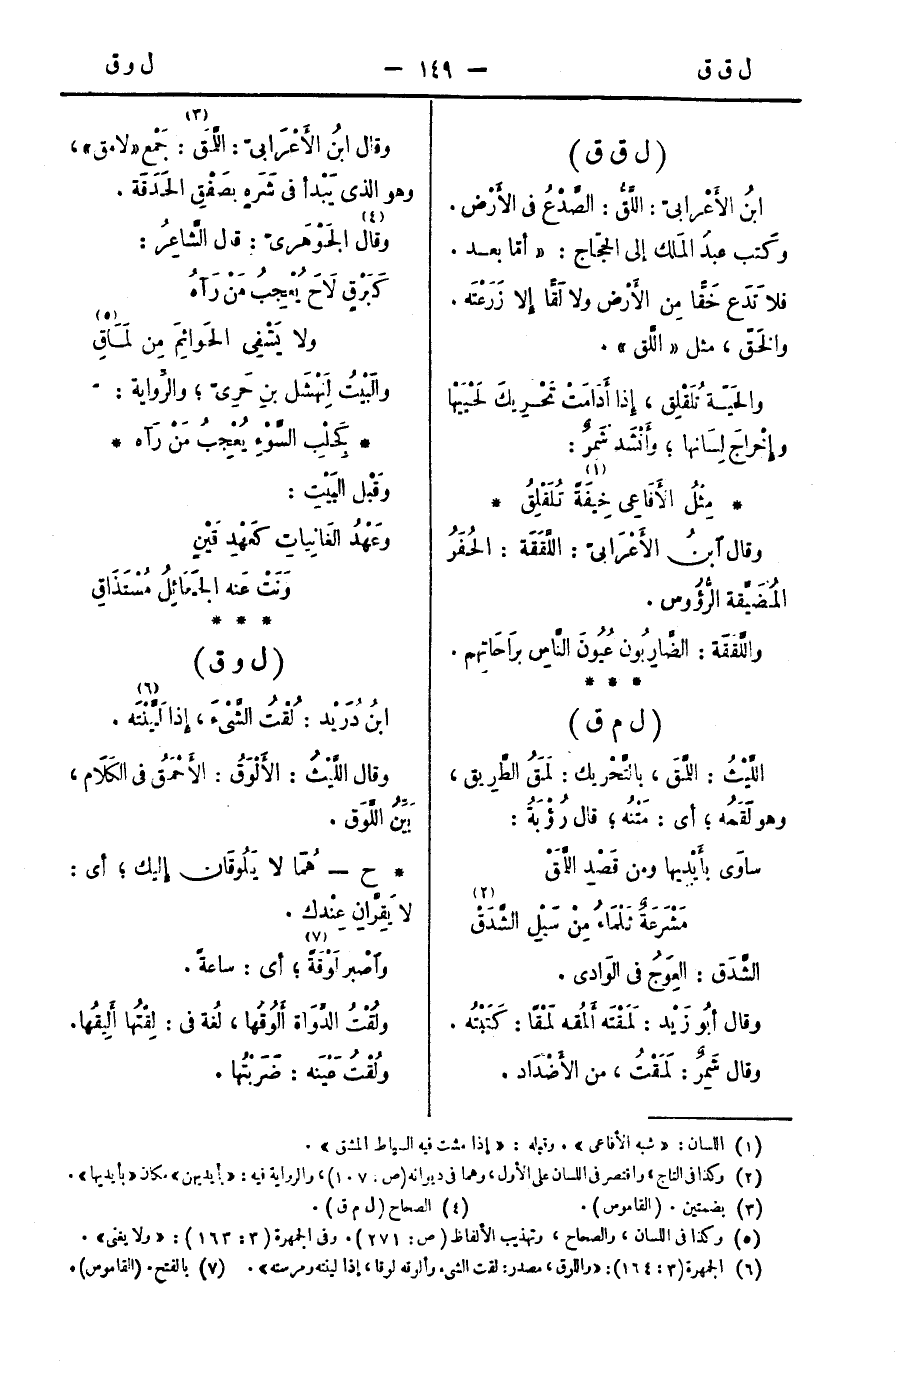 ل ق ق
— ١٤٩ —
ل و ق
(ل ق ق)
ابنُ الأَعْرابىّ : اللَّقُّ : الصَّدْعُ فى الأَرْض .
وكَتب عبدُ المَلك إلى الحجّاج : « أمّا بعـد .
فلا تَدَع خَقًّا مِن الأَرْض ولا لَقًّا إلا زَرَعْتَه .
والخَقّ ، مثل « اللَّق » .
والحَيَّـة تُلَقْلِق ، إذا أَدَامَتْ تَحْـرِيكَ لَحْيَيْها
وإخْراجَ لِسَانها ؛ وأَنْشَد شَمِرٌ :
* مِثْلُ الأَفَاعِى خِيفَةً تُلَقْلِقُ (١) *
وقال ابنُ الأَعْرابىّ : اللَّقَقَة : الحُفَرُ
المُضَيَّقة الرُّؤُوس .
واللَّقَقَة : الضَّارِبُون عُيُونَ النَّاس براحَاتِهم .
* * *
(ل م ق)
اللَّيْثُ : اللَّمَق ، بالتَّحْرِيك : لَمَقُ الطَّرِيق ،
وهو لَقَمُه ؛ أى : مَتْنُه ؛ قال رُؤْبَةُ :
ساوَى بأَيْدِيها ومن قَصْدِ اللَّمَقْ
مَشْرَعَةٌ ثَلْمَاءُ مِنْ سَيْلِ الشَّدَقْ (٢)
الشَّدَق : العِوَجُ فى الوَادى .
وقال أبُو زَيْد : لَمَقْتُه أَلمُقه لَمْقًا : كَتَبْتُه .
وقال شَمِرٌ : لَمَقْتُ ، من الأَضْدَاد .
وقال ابنُ الأَعْرَابىّ : اللُّمُق (٣) : جَمْع «لامق» ،
وهو الذى يَبْدأ فى شَرِّه بصَفْقِ الحَدَقَة .
وقال الجَوْهَرىّ (٤) : قال الشَّاعِرُ :
كَبَرْقٍ لَاحَ يُعْجِبُ مَنْ رَآهُ
ولا يَشْفِى الحَوائِمَ مِن لَمَـاقِ (٥)
والَبيْتُ لِنَهْشَل بنِ حَرِىّ ؛ والرِّواية :
* كَجِلْبِ السَّوْءِ يُعْجِبُ مَنْ رَآه *
وقَبل البَيْتِ :
وعَهْدُ الغَانِياتِ كَعَهْدِ قَيْنٍ
وَنَتْ عَنه الجَعَائِلُ مُسْتَذَاقِ
* * *
(ل و ق)
ابنُ دُرَيْد : لُقْتُ الشَّىْءَ ، إذا لَيَّنْتَه (٦) .
وقال اللَّيْثُ : الأَلْوَقُ : الأَحْمَقُ فى الكَلَام ،
بَيِّنُ اللَّوَق .
* ح — هُمَا لا يَلُوقَان إليك ؛ أى :
لا يَقِرَّانِ عِنْدك .
وٱصْبر لَوْقَةً (٧) ؛ أى : ساعةً .
ولُقْتُ الدَّوَاة أَلُوقُها ، لُغة فى : لِقْتُها أَلِيقُها.
ولُقْتُ عَيْنَه : ضَرَبْتُها .
(١) اللسان : « شبه الأفاعى » . وقبله : « إذا مشت فيه السياط المشق » .
(٢) وكذا فى التاج ، واقتصر فى اللسان على الأول ، وهما فى ديوانه (ص : ١٠٧) ، والرواية فيه : «أيديهن» مكان «بأيديها» .
(٣) بضمتين . (القاموس) . (٤) الصحاح (ل م ق) .
(٥) وكذا فى اللسان ، والصحاح ، وتهذيب الألفاظ (ص : ٢٧١) . وفى الجمهرة (٣ : ١٦٣) : «ولا يغنى» .
(٦) الجمهرة (٣ : ١٦٤) : «واللوق ، مصدر : لقت الشىء وألوقه لوقا ، إذا لينته ومرسته» . (٧) بالفتح . (القاموس) .